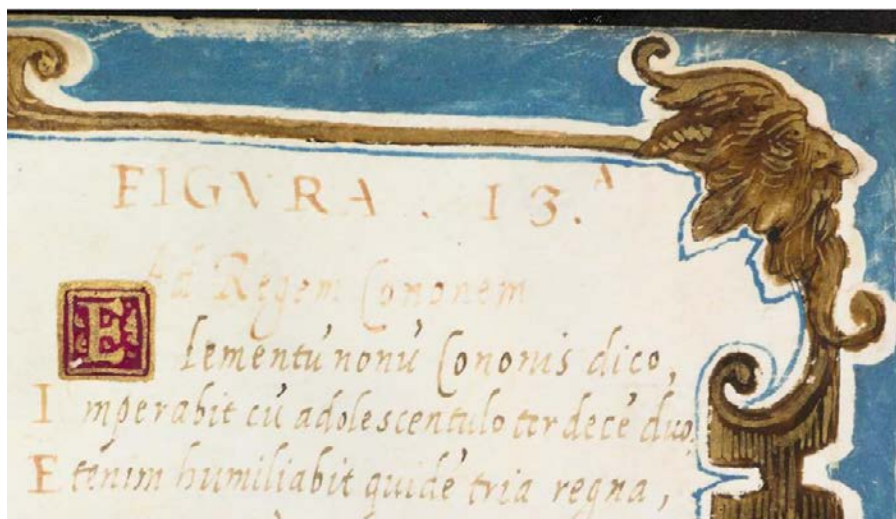 FIGVRA . 13.A
Ad Regem Cononem
Elementú nonú Cononis dico,
Imperabit cú adolescentulo ter decé duo,
Etenim humiliabit quidé tria regna,